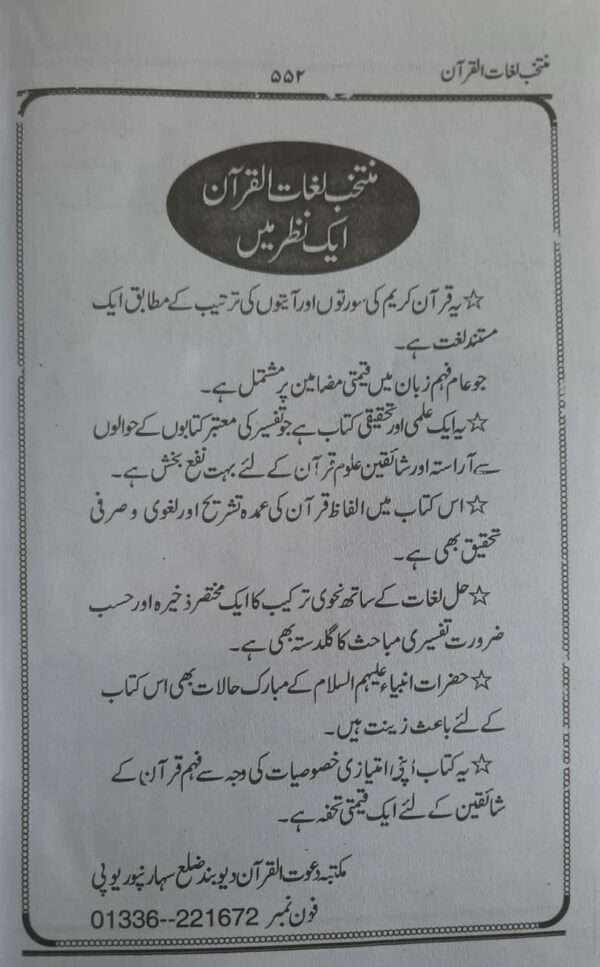 منتخب لغات القرآن
۵۵۲
منتخب لغات القرآن
ایک نظر میں
☆ یہ قرآن کریم کی سورتوں اور آیتوں کی ترتیب کے مطابق ایک
مستند لغت ہے۔
جو عام فہم زبان میں قیمتی مضامین پر مشتمل ہے۔
☆ یہ ایک علمی اور تحقیقی کتاب ہے جو تفسیر کی معتبر کتابوں کے حوالوں
سے آراستہ اور شائقین علوم قرآن کے لئے بہت نفع بخش ہے۔
☆ اس کتاب میں الفاظ قرآن کی عمدہ تشریح اور لغوی و صرفی
تحقیق بھی ہے۔
☆ حل لغات کے ساتھ نحوی ترکیب کا ایک مختصر ذخیرہ اور حسب
ضرورت تفسیری مباحث کا گلدستہ بھی ہے۔
☆ حضرات انبیاء علیہم السلام کے مبارک حالات بھی اس کتاب
کے لئے باعث زینت ہیں۔
☆ یہ کتاب اپنی امتیازی خصوصیات کی وجہ سے فہم قرآن کے
شائقین کے لئے ایک قیمتی تحفہ ہے۔
مکتبہ دعوت القرآن دیوبند ضلع سہارنپور یوپی
فون نمبر 221672--01336